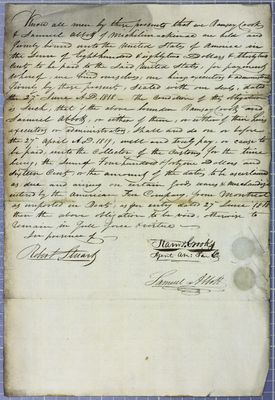 Know all men by these presents that we Ramsay Crooks
& Samuel Abbott of Michilimackinac are held and
firmly bound unto the United States of America in
the Sum of Eight hundred & eighty two Dollars &
cents to be paid to the said United States, for payment
whereof we bind ourselves, our heirs, executors & administrators
firmly by these presents, sealed with our seals, dated
this 27 June A.D. 1818. The Condition of this obligation
is such, that if the above bounden Ramsay Crooks and
Samuel Abbott, or either of them, or either of their heirs
executors or administrators, shall and do on or before
the 27 April A.D. 1819, well and truly pay or cause to
be paid, unto the Collector of the Customs for the time
being, the Sum of Four hundred & forty one Dollars and
Sixteen Cents or the amount of the duties to be ascertained
as due and arising on certain goods wares & merchandize
entered by the American Fur Company from Montreal
as imported in Boats, as per entry dated 27 June 1818
then the above obligation to be void, otherwise to
remain in full force & virtue
In presence of
Ramsay Crooks
Agent Am: Fur Co
Robert Stuart
Samuel Abbott